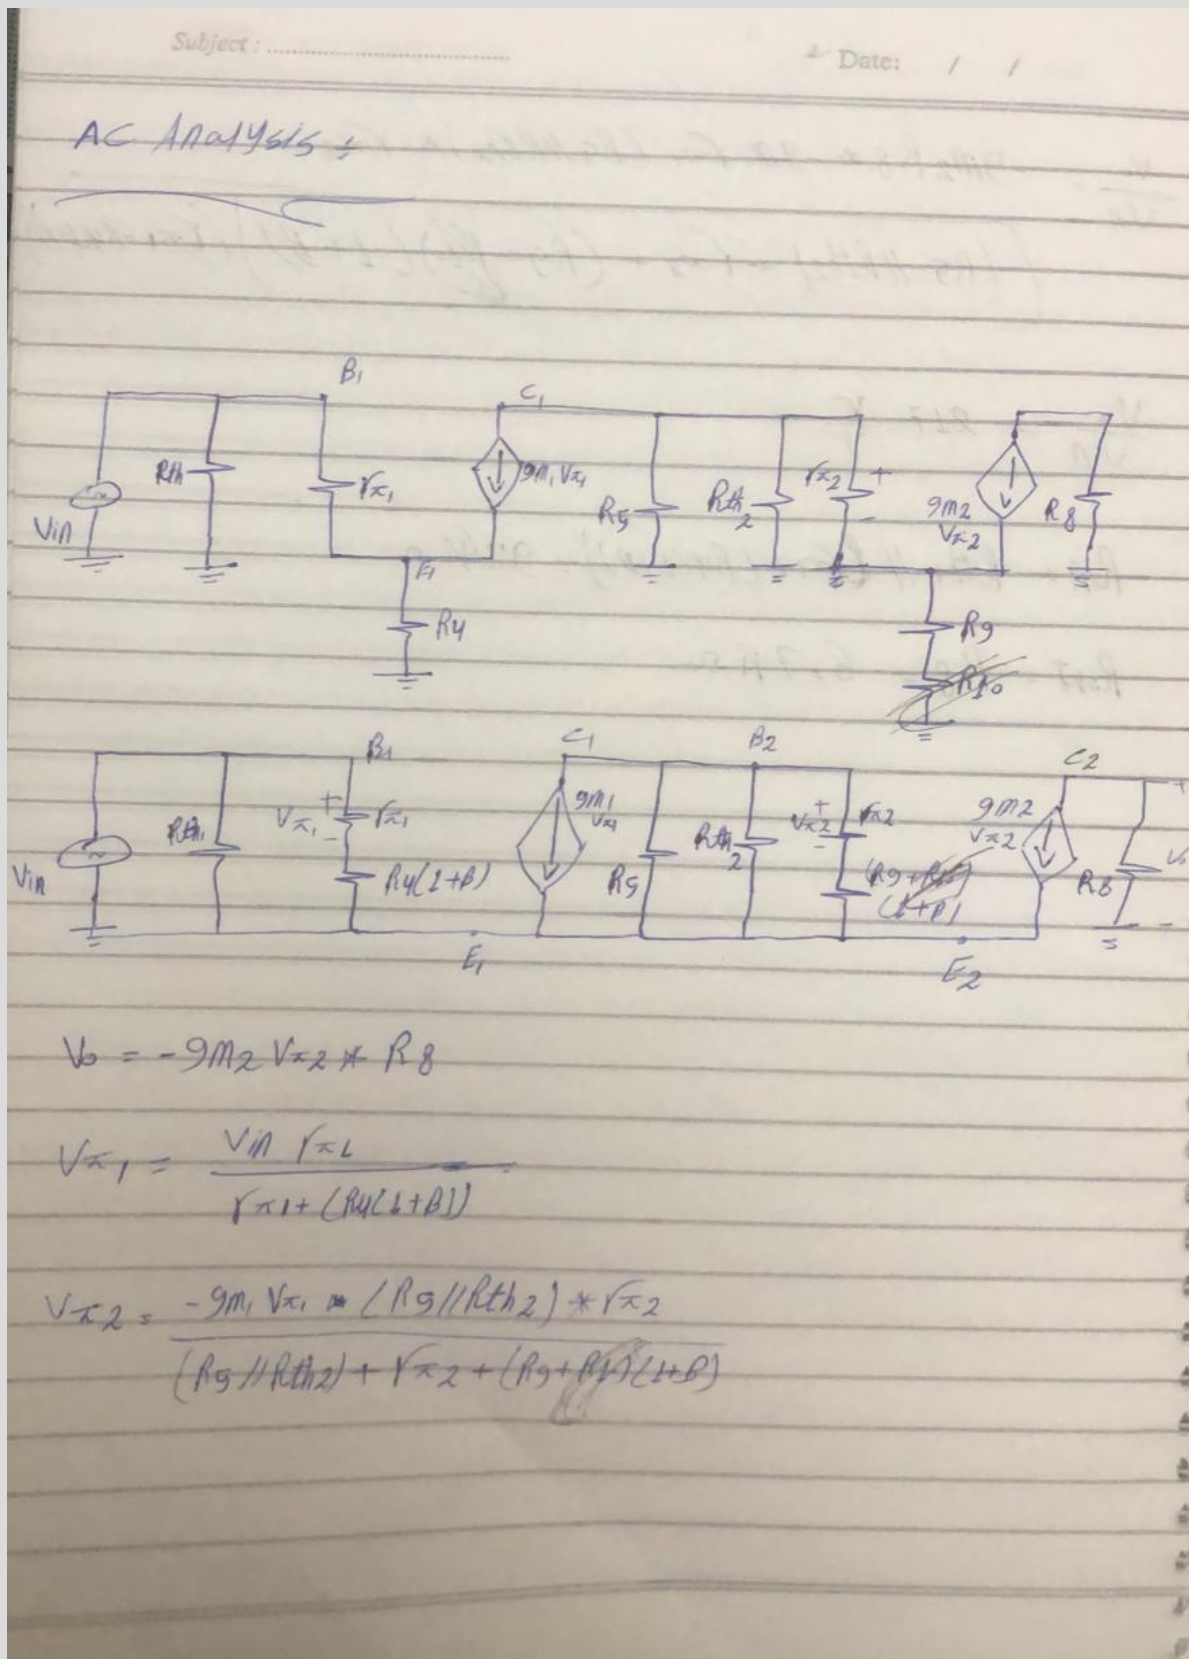 Subject :
Date: / /
AC Analysis :
B1
C1
Rth
rπ1
gm1 Vπ1
R5
Rth2
rπ2
+
-
gm2 Vπ2
R8
Vin
E1
R4
R9
R10
B1
C1
B2
C2
Vin
Rth1
Vπ1
+
-
rπ1
R4(1+B)
gm1 Vπ1
R5
Rth2
+
Vπ2
-
rπ2
(1+B)
gm2 Vπ2
R8
+
Vo
-
E1
E2
Vo = -gm2 Vπ2 * R8
Vπ1 = Vin rπ1
rπ1 + (R4(1+B))
Vπ2 = -gm1 Vπ1 * (R5//Rth2) * rπ2
(R5//Rth2) + rπ2 + (R9+ )(1+B)